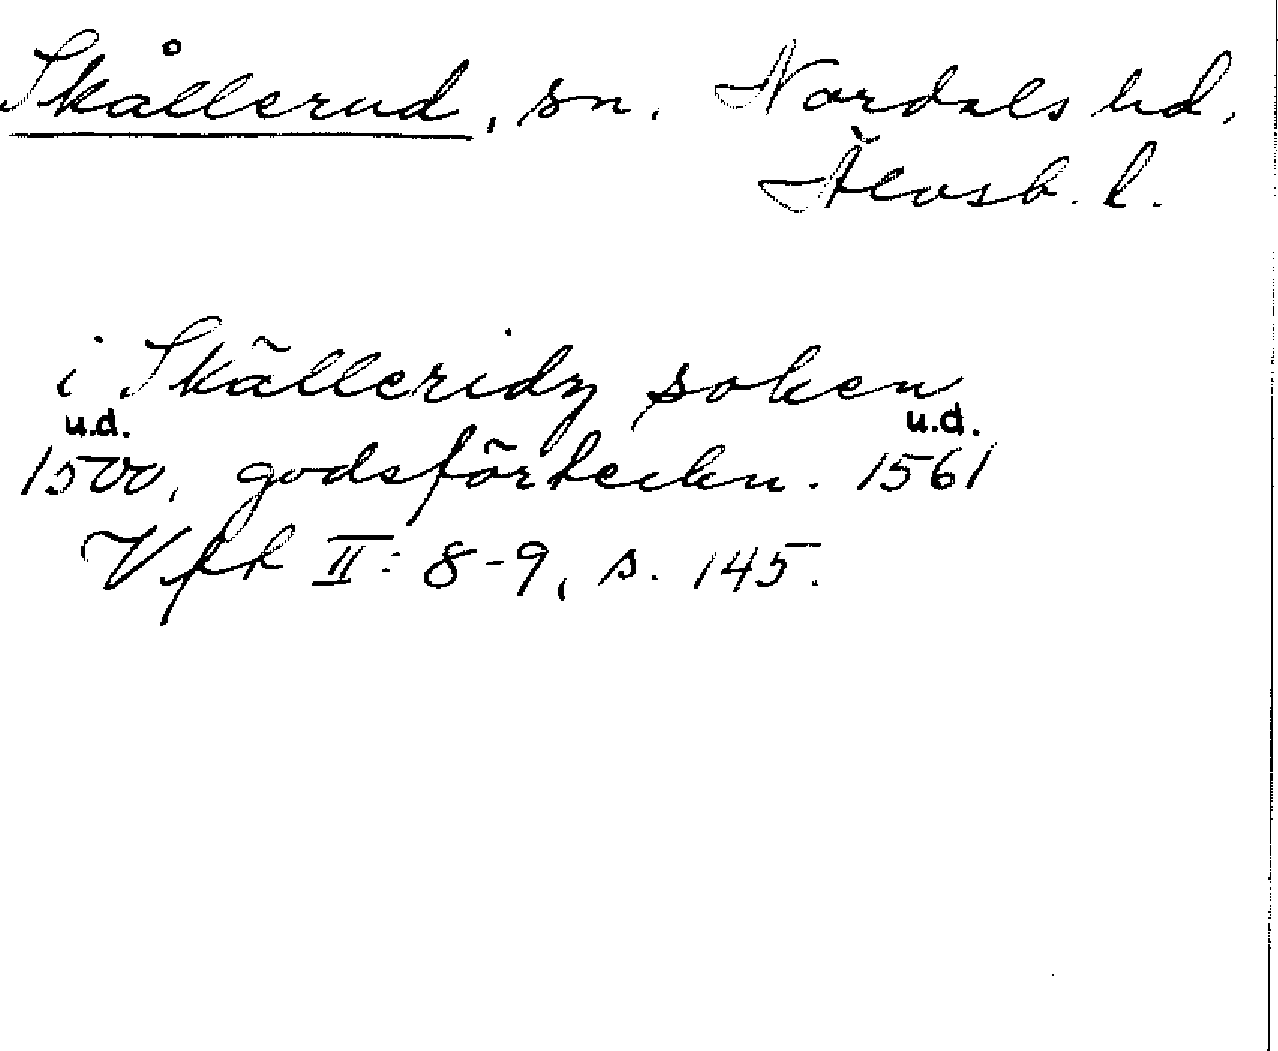 Skållerud, sn. Nordals hd,
Älvsb. l.
i Skälleridz soken
u.d. u.d.
1500, godsförteckn. 1561
Vfth II: 8-9, s. 145.